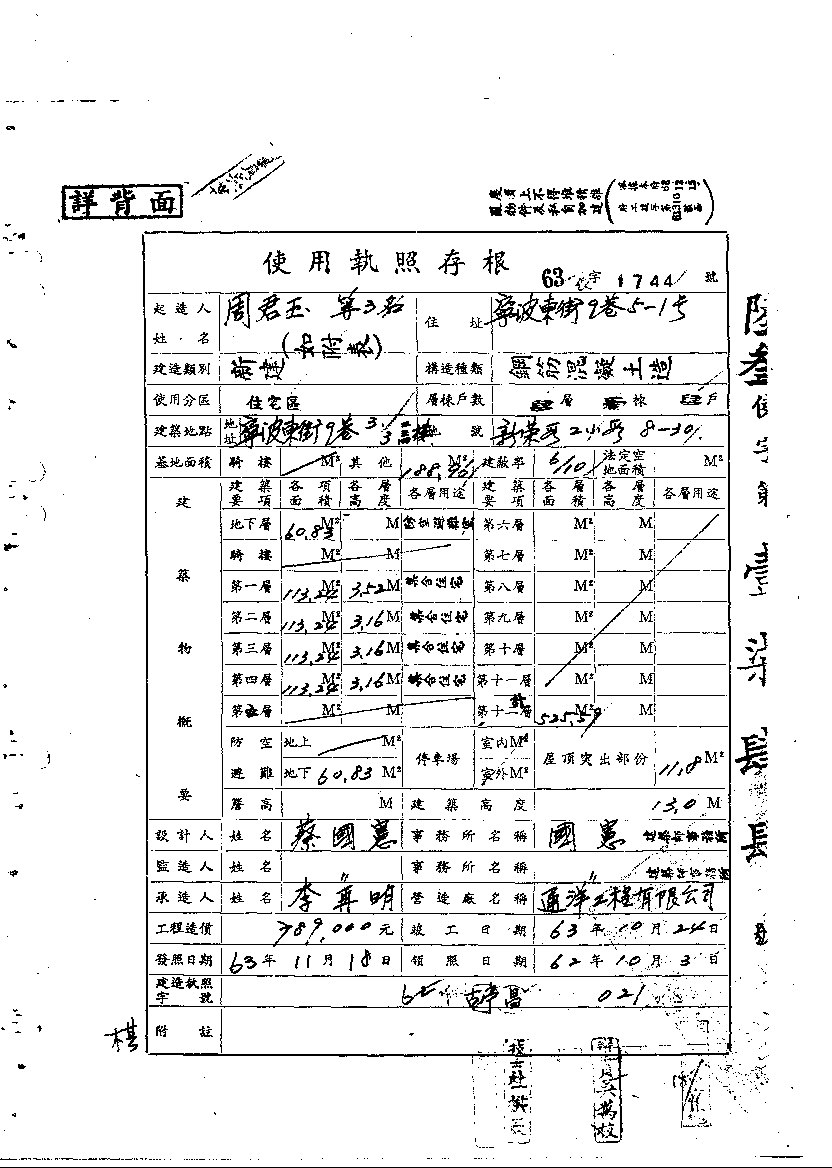 詳背面
使用執照存根 63 字 1744 號
起造人姓名 周君玉 等3名 (如附表) 住址 寧波東街9巷5-1号
建造類別 新建 構造種類 鋼筋混凝土造
使用分區 住宅區 層棟戶數 層 棟 戶
建築地點 地址 寧波東街9巷 地號 2小段 8-30
基地面積 騎樓 M² 其他 188,90 M² 建蔽率 6/10 法定空地面積 M²
建築物概要 建築要項 各項面積 各層高度 各層用途 建築要項 各層面積 各層高度 各層用途
地下層 60.83 M² M 第六層 M² M
騎樓 M² M 第七層 M² M
第一層 113,24 M² 3,52 M 集合住宅 第八層 M² M
第二層 113,24 M² 3,16 M 集合住宅 第九層 M² M
第三層 113,24 M² 3,16 M 集合住宅 第十層 M² M
第四層 113,24 M² 3,16 M 集合住宅 第十一層 M² M
第五層 M² M 第十二層 計 525,59 M² M
防空避難 地上 M² 停車場 室內 M² 屋頂突出部份 11,8 M²
地下 60,83 M² 室外 M²
簷高 M 建築高度 13,0 M
設計人 姓名 蔡國憲 事務所名稱 國憲 建築師事務所
監造人 姓名 〃 事務所名稱 〃 建築師事務所
承造人 姓名 李再明 營造廠名稱 通洋工程有限公司
工程造價 789,000 元 竣工日期 63年10月24日
發照日期 63年11月18日 領照日期 62年10月3日
建造執照字號 021
附註
棋